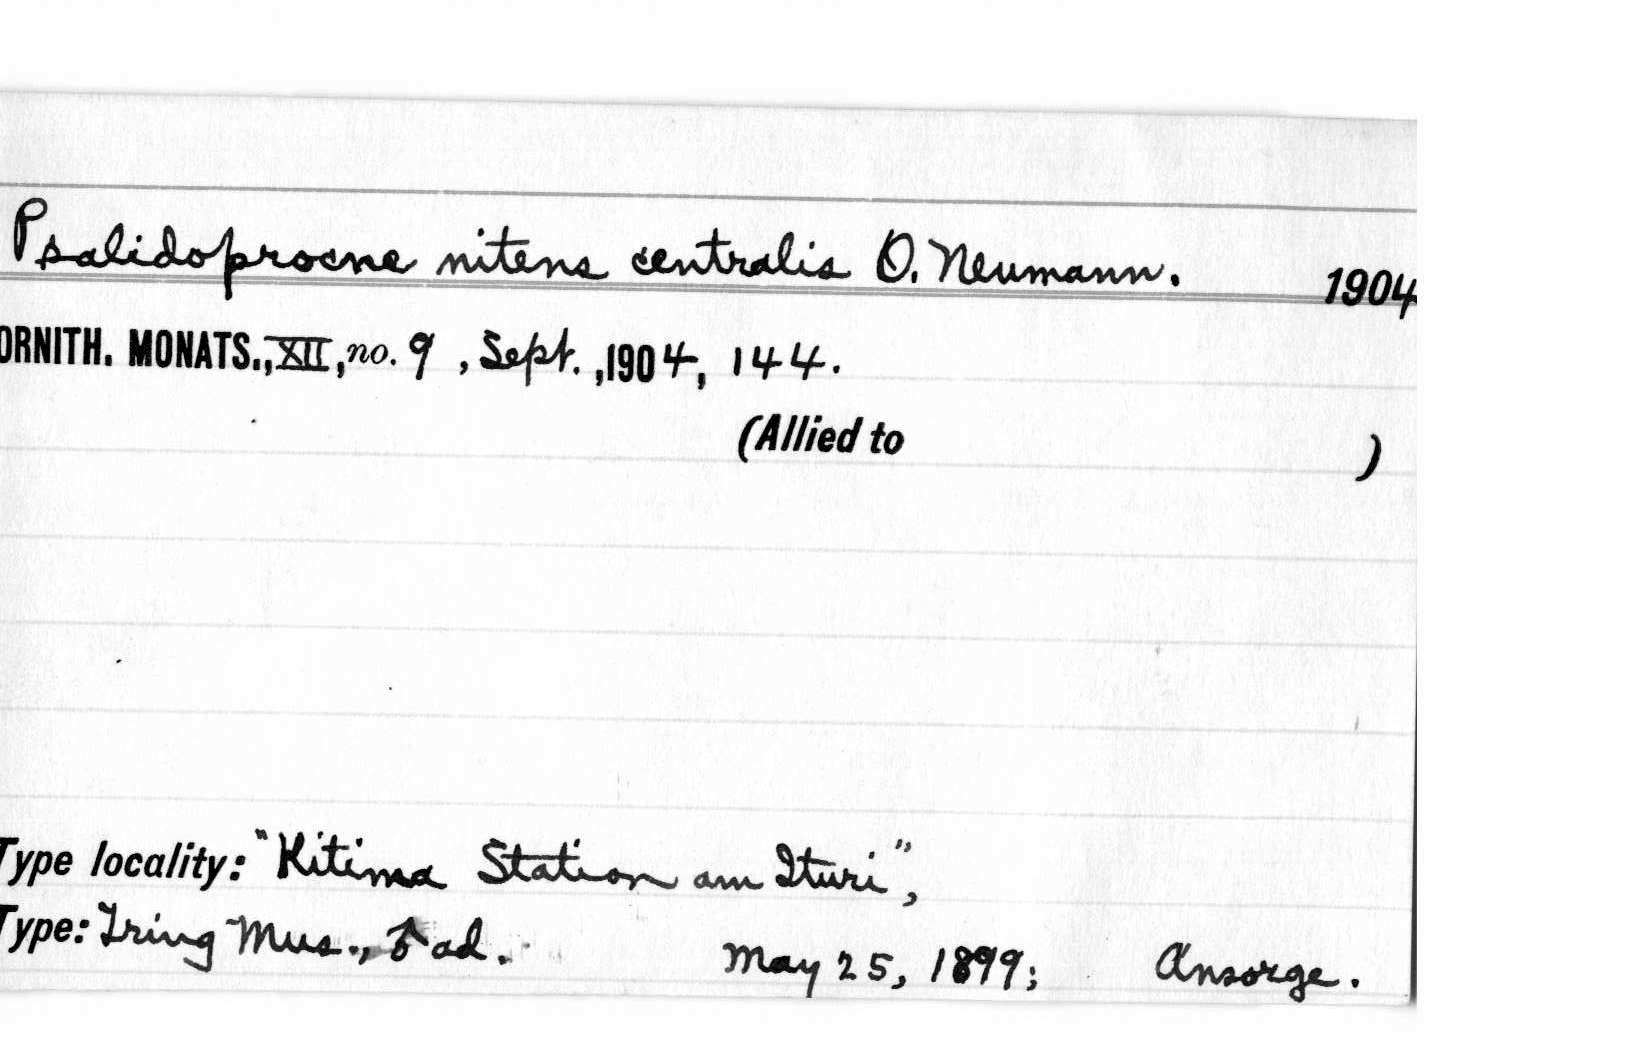 Psalidoprocne nitens centralis O. Neumann. 1904
ORNITH. MONATS., XII, no. 9, Sept., 1904, 144.
(Allied to )
Type locality: "Kitima Station am Ituri",
Type: Tring Mus., ♂ ad. May 25, 1899; Ansorge.